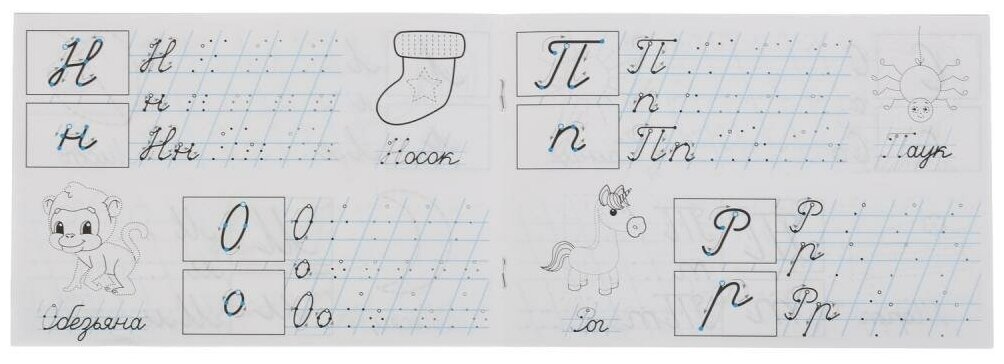 Н Н
н
н Нн
Носок
О О
о
о Оо
Обезьяна
П П
п
п Пп
Паук
Р Р
р
р Рр
Рог